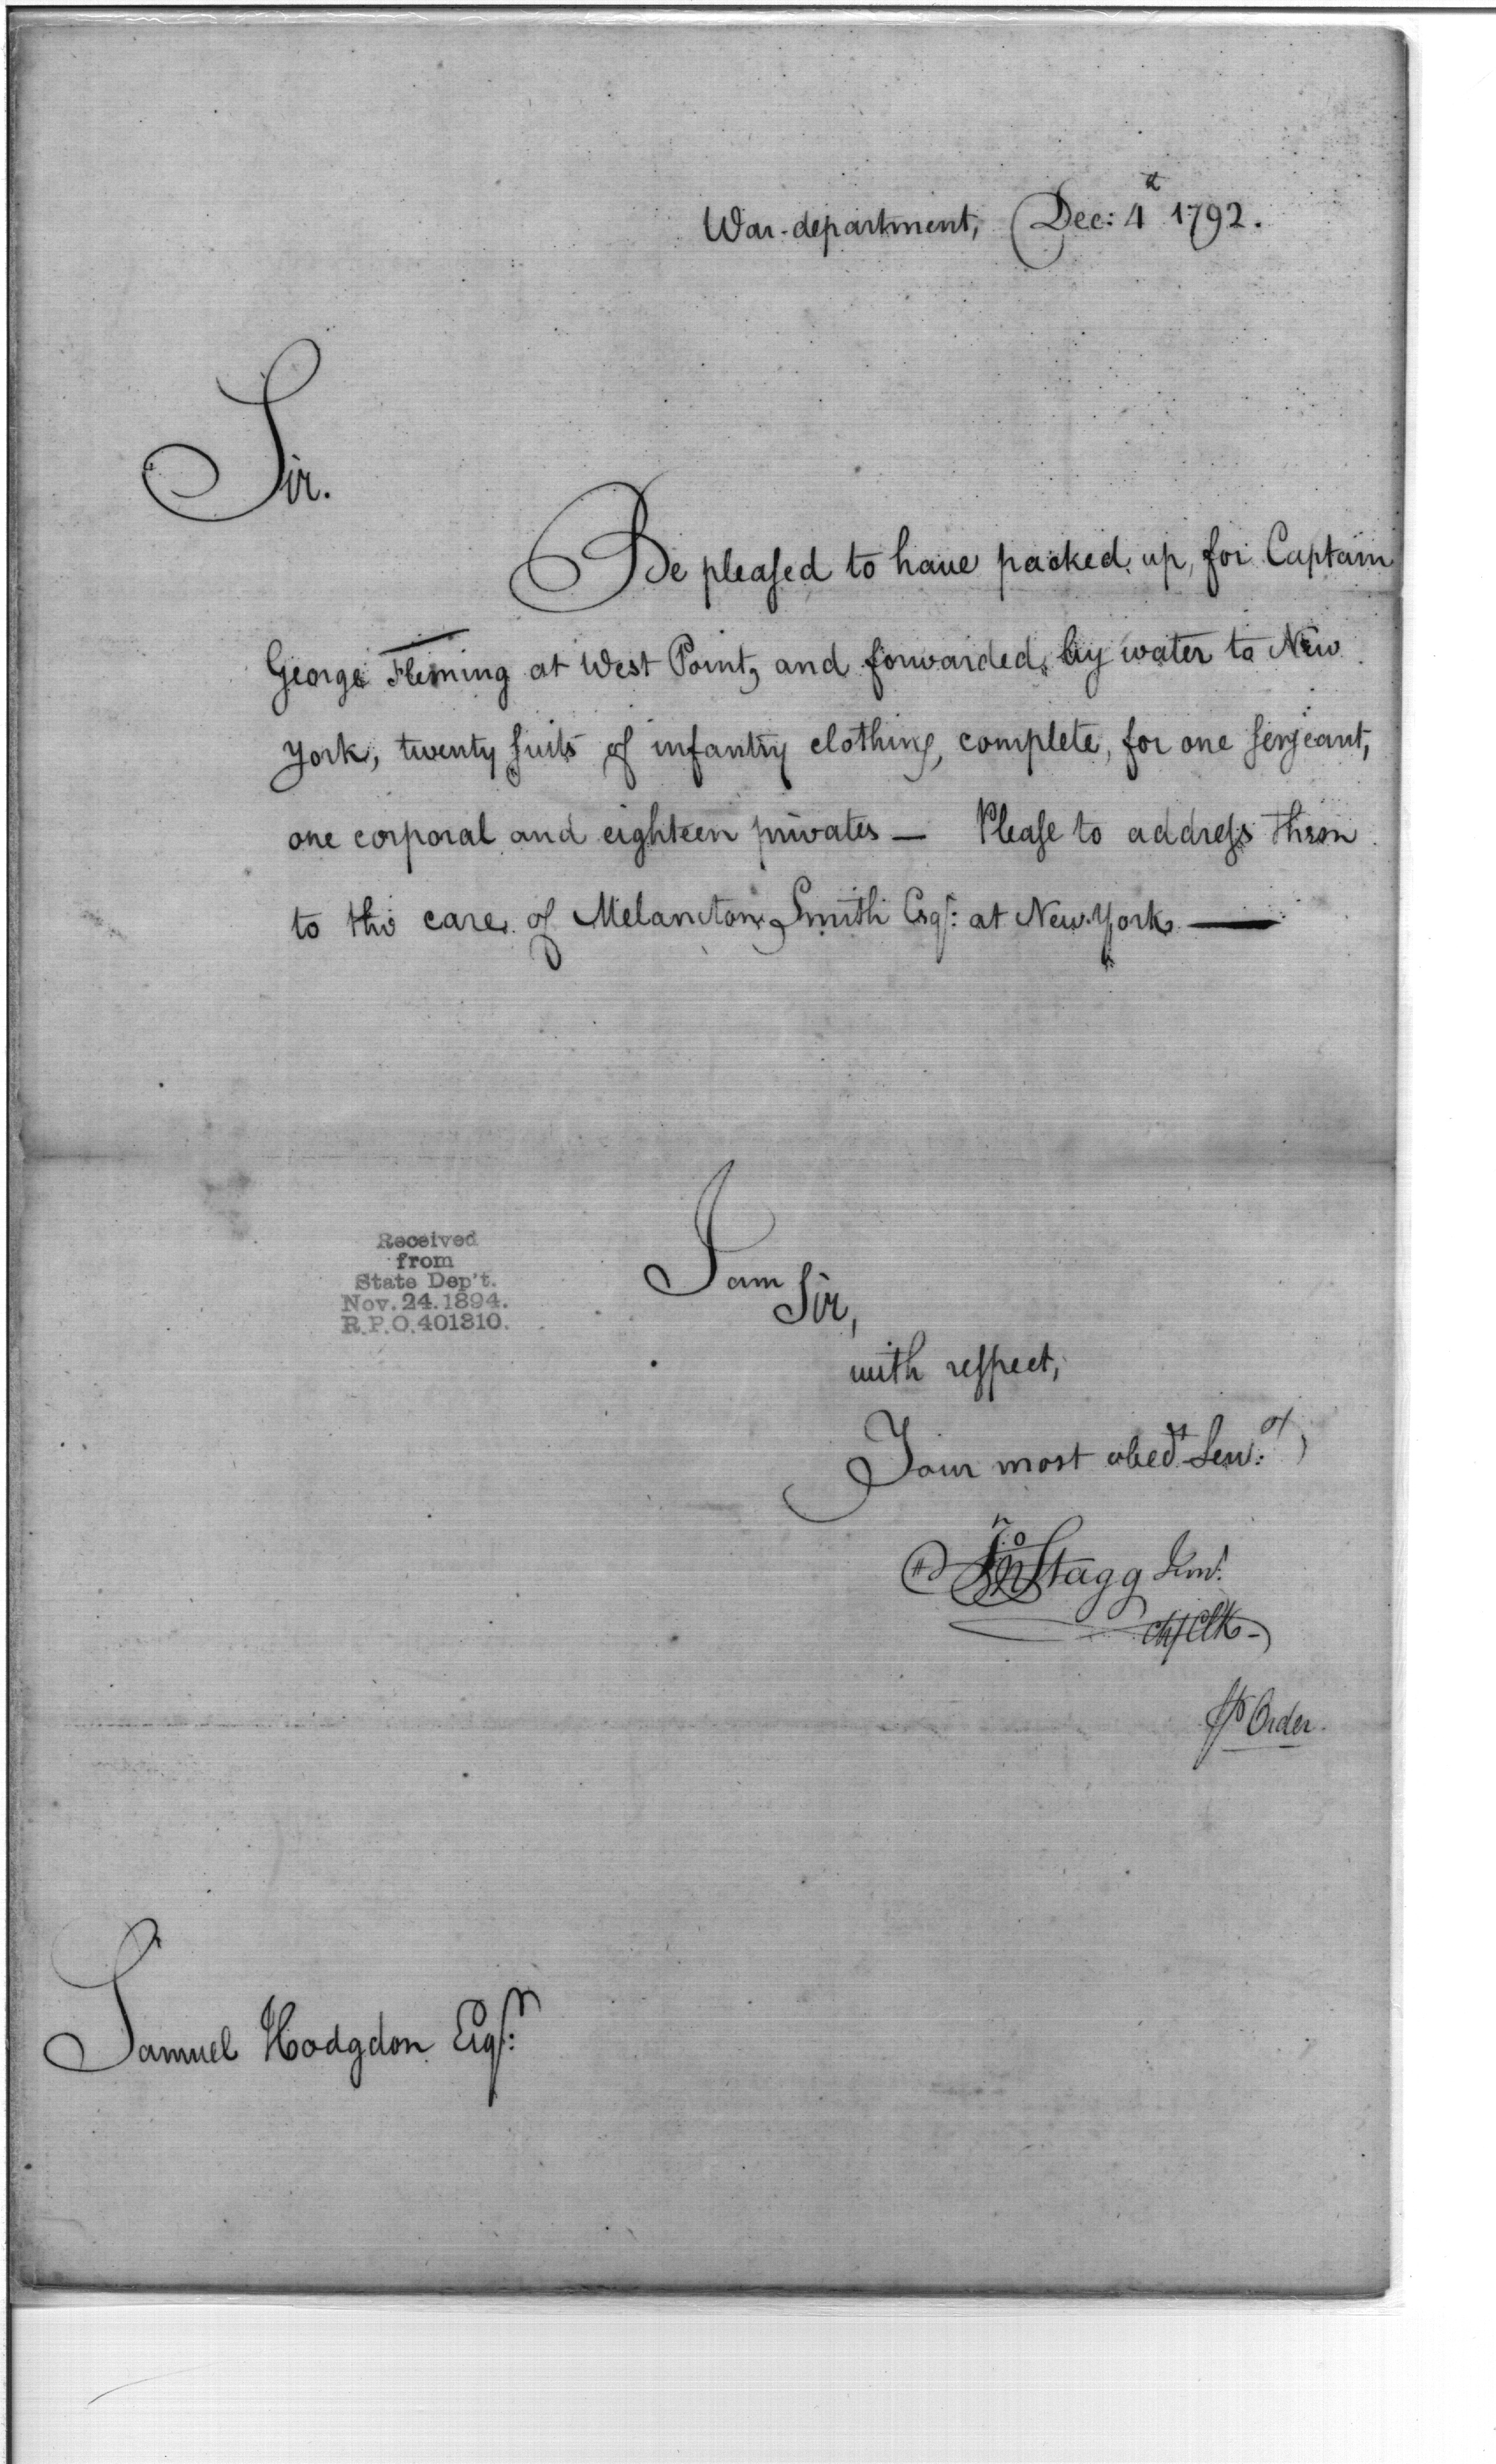 War-department, Dec: 4th 1792.
Sir.
Be pleased to have packed up, for Captain
George Fleming at West Point, and forwarded, by water to New
York, twenty suits of infantry clothing, complete, for one serjeant,
one corporal and eighteen privates — Please to address them
to the care of Melancton Smith Esqr: at New York —
Received
from
State Dep't.
Nov. 24. 1894.
R.P.O. 401310.
I am
Sir,
with respect,
Your most obedt Servt:
Jno Stagg Junr.
Chf Clk -
Order
Samuel Hodgdon Esqr: